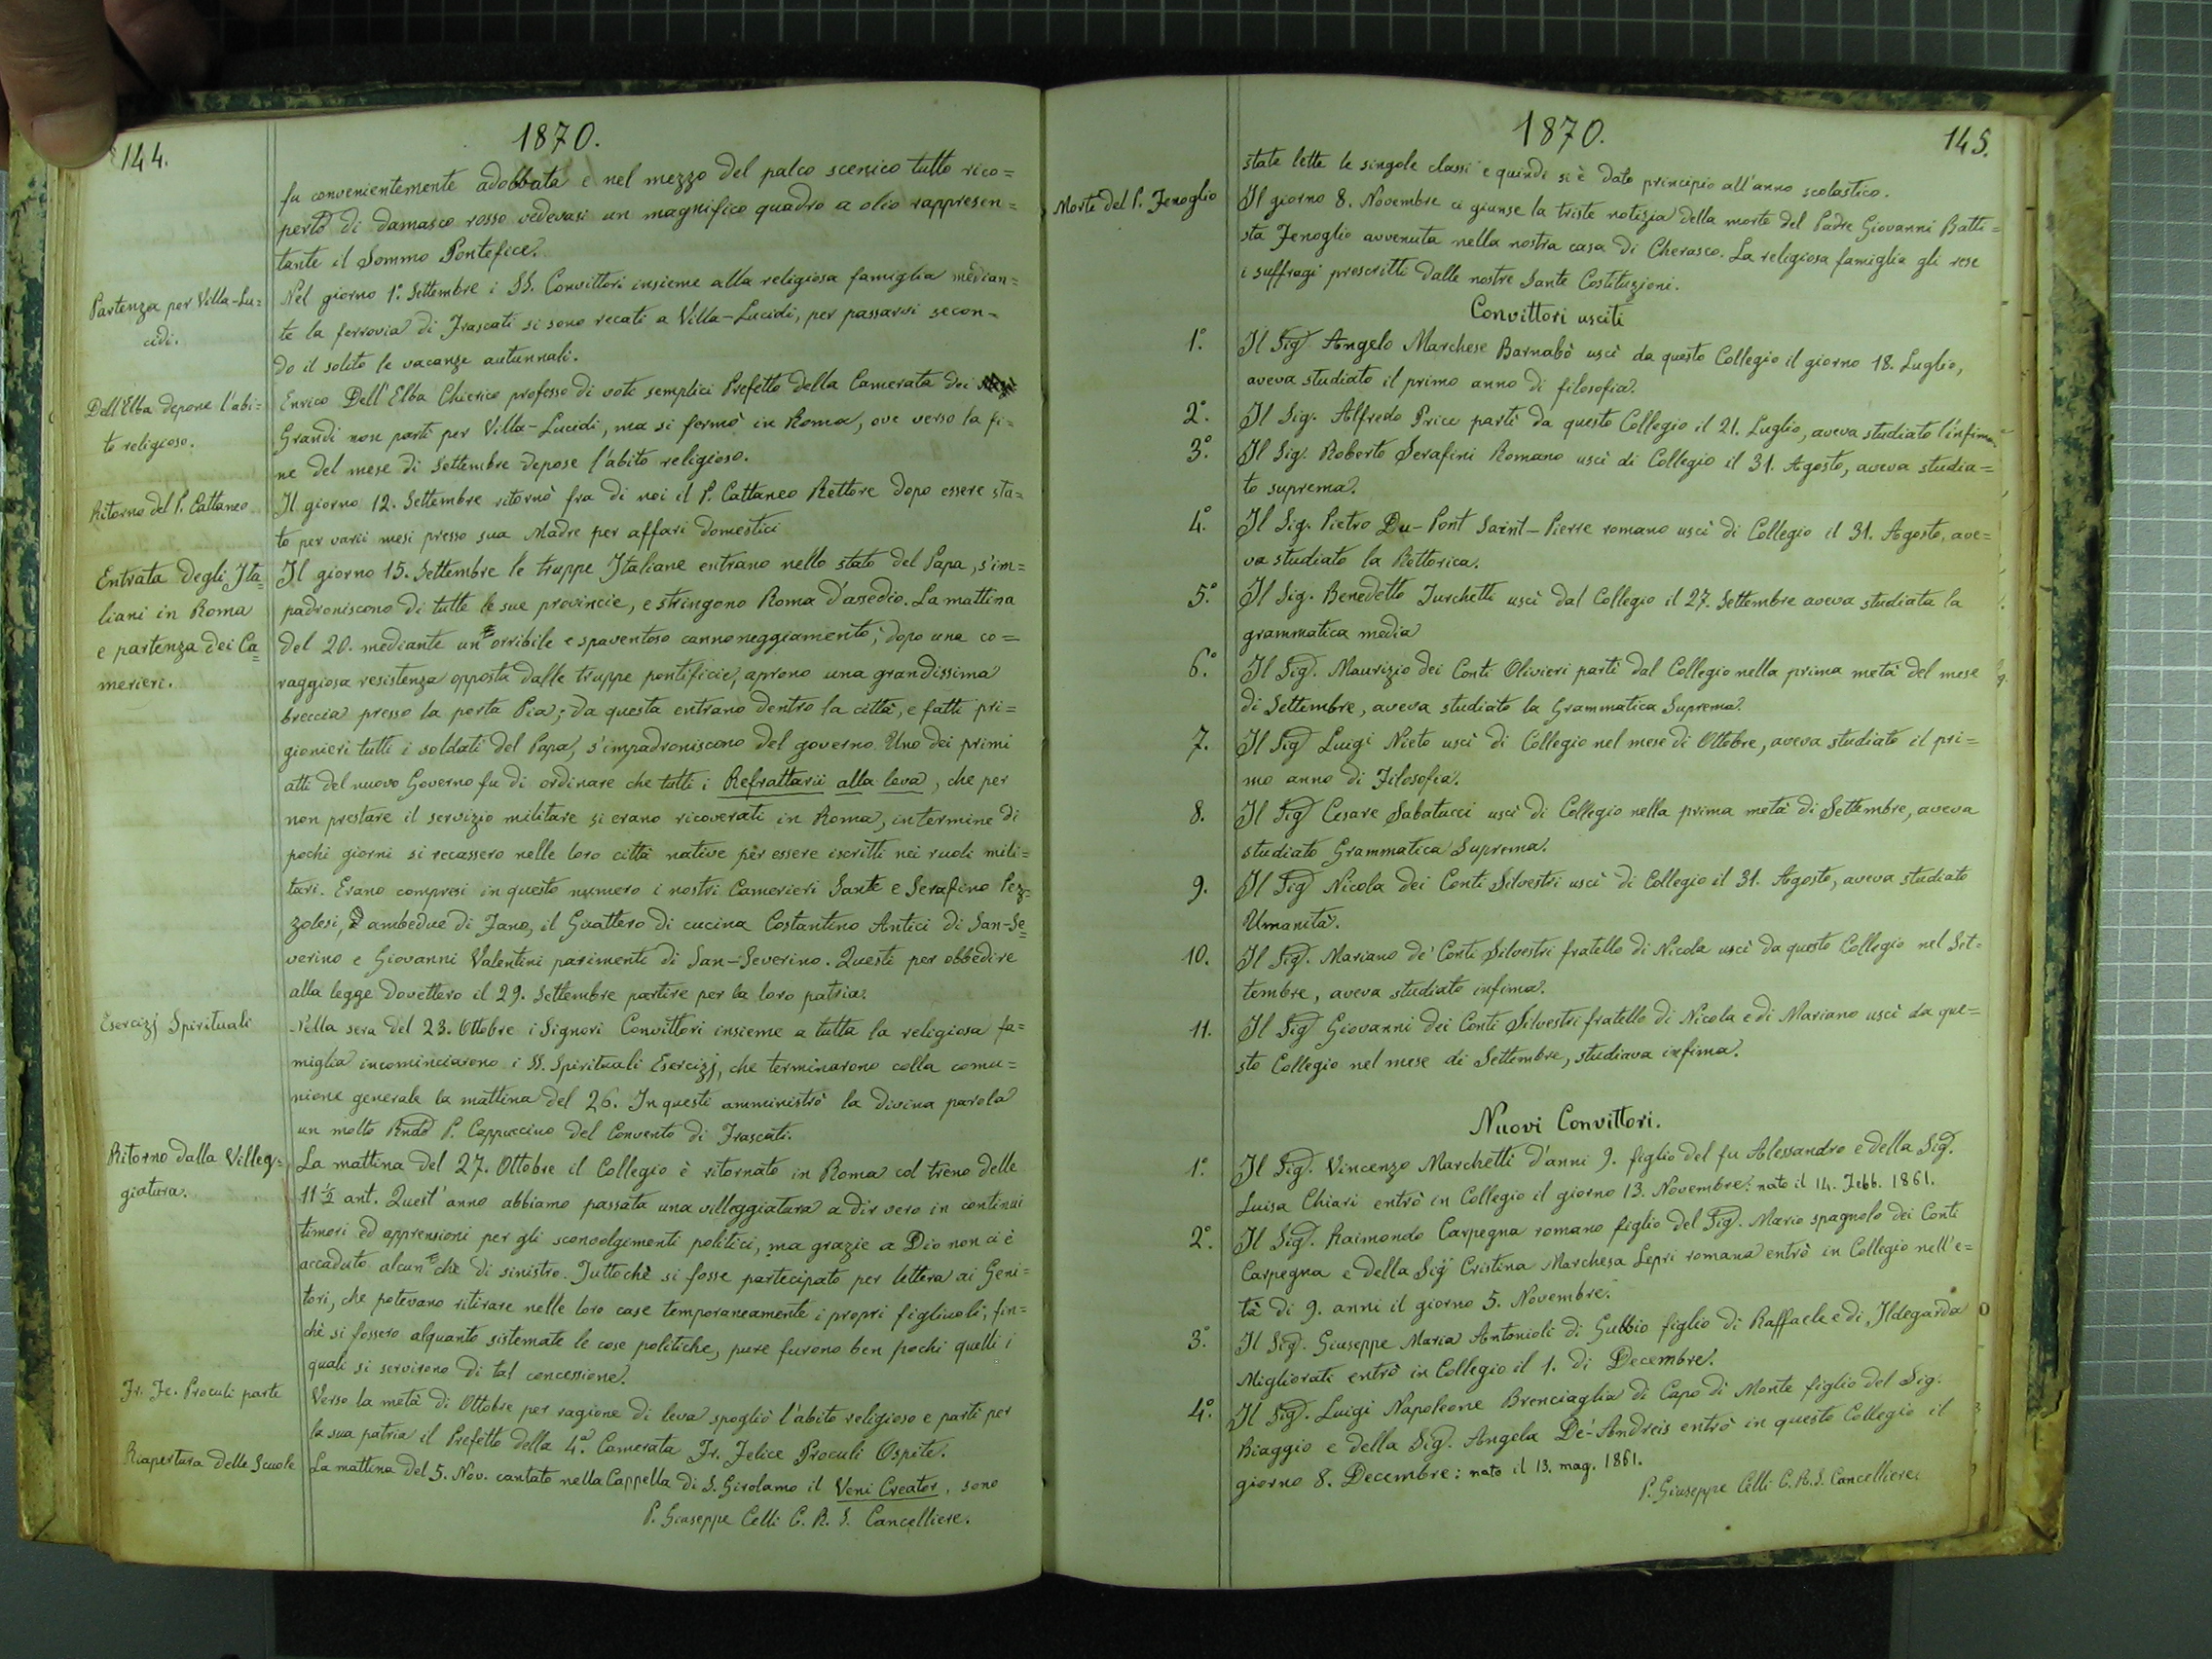 144.
1870.
fu convenientemente adobbata e nel mezzo del palco scenico tutto rico=
perto di damasco rosso vedevasi un magnifico quadro a olio rappresen=
tante il Sommo Pontefice.
Partenza per Villa-Lu=
cidi.
Nel giorno 1.° Settembre i SS. Convittori insieme alla religiosa famiglia median=
te la ferrovia di Frascati si sono recati a Villa-Lucidi, per passarvi secon=
do il solito le vacanze autunnali.
Dell'Elba depone l'abi=
to religioso.
Enrico Dell'Elba Chierico professo di voti semplici Prefetto della Camerata dei
Grandi non partì per Villa-Lucidi, ma si fermò in Roma, ove verso la fi=
ne del mese di Settembre depose l'abito religioso.
Ritorno del P. Cattaneo
Il giorno 12. Settembre ritornò fra di noi il P. Cattaneo Rettore dopo essere sta=
to per varii mesi presso sua Madre per affari domestici
Entrata degli Ita=
liani in Roma
e partenza dei Ca=
merieri.
Il giorno 15. Settembre le truppe Italiane entrano nello stato del Papa, s'im=
padroniscono di tutte le sue provincie, e stringono Roma d'assedio. La mattina
del 20. mediante un orribile e spaventoso cannoneggiamento, dopo una co=
raggiosa resistenza opposta dalle truppe pontificie, aprono una grandissima
breccia presso la porta Pia; da questa entrano dentro la città, e fatti pri=
gionieri tutti i soldati del Papa, s'impadroniscono del governo. Uno dei primi
atti del nuovo Governo fu di ordinare che tutti i Refrattarii alla leva, che per
non prestare il servizio militare si erano ricoverati in Roma, in termine di
pochi giorni si recassero nelle loro città native per essere iscritti nei ruoli mili=
tari. Erano compresi in questo numero i nostri Camerieri Sante e Serafino Pez=
zolesi, ambedue di Fano, il Guattero di cucina Costantino Antici di San-Se=
verino e Giovanni Valentini parimenti di San-Severino. Questi per obbedire
alla legge dovettero il 29. Settembre partire per la loro patria.
Esercizj Spirituali
Nella sera del 23. Ottobre i Signori Convittori insieme a tutta la religiosa fa=
miglia incominciarono i SS. Spirituali Esercizj, che terminarono colla comu=
nione generale la mattina del 26. In questi amministrò la divina parola
un molto Rndo P. Cappuccino del Convento di Frascati.
Ritorno dalla Villeg=
giatura.
La mattina del 27. Ottobre il Collegio è ritornato in Roma col treno delle
11 ½ ant. Quest'anno abbiamo passata una villeggiatura a dir vero in continui
timori ed apprensioni per gli sconvolgimenti politici, ma grazie a Dio non ci è
accaduto alcun che di sinistro. Tuttochè si fosse partecipato per lettera ai Geni=
tori, che potevano ritirare nelle loro case temporaneamente i propri figliuoli, fin=
chè si fossero alquanto sistemate le cose politiche, pure furono ben pochi quelli i
quali si servirono di tal concessione.
Fr. Fe. Proculi parte
Verso la metà di Ottobre per ragione di leva spogliò l'abito religioso e partì per
la sua patria il Prefetto della 4.a Camerata Fr. Felice Proculi Ospite.
Riapertura delle Scuole
La mattina del 5. Nov. cantato nella Cappella di S. Girolamo il Veni Creator, sono
P. Giuseppe Celli C. R. S. Cancelliere.
1870.
145.
state lette le singole classi e quindi si è dato principio all'anno scolastico.
Morte del P. Fenoglio
Il giorno 8. Novembre ci giunse la triste notizia della morte del Padre Giovanni Batti=
sta Fenoglio avvenuta nella nostra casa di Cherasco. La religiosa famiglia gli rese
i suffragi prescritti dalle nostre Sante Costituzioni.
Convittori usciti
1.° Il Sig. Angelo Marchese Barnabò uscì da questo Collegio il giorno 18. Luglio,
aveva studiato il primo anno di filosofia.
2.° Il Sig. Alfredo Price partì da questo Collegio il 21. Luglio, aveva studiato l'infima
3.° Il Sig. Roberto Serafini Romano uscì di Collegio il 31. Agosto, aveva studia=
to suprema.
4.° Il Sig. Pietro Du-Pont Saint-Pierre romano uscì di Collegio il 31. Agosto, ave=
va studiato la Rettorica.
5.° Il Sig. Benedetto Turchetti uscì dal Collegio il 27. Settembre aveva studiata la
grammatica media
6.° Il Sig. Maurizio dei Conti Olivieri partì dal Collegio nella prima metà del mese
di Settembre, aveva studiato la Grammatica Suprema.
7. Il Sig. Luigi Nieto uscì di Collegio nel mese di Ottobre, aveva studiato il pri=
mo anno di Filosofia.
8. Il Sig. Cesare Sabatucci uscì di Collegio nella prima metà di Settembre, aveva
studiato Grammatica Suprema.
9. Il Sig. Nicola dei Conti Silvestri uscì di Collegio il 31. Agosto, aveva studiato
Umanità.
10. Il Sig. Mariano de' Conti Silvestri fratello di Nicola uscì da questo Collegio nel Set=
tembre, aveva studiato infima.
11. Il Sig. Giovanni dei Conti Silvestri fratello di Nicola e di Mariano uscì da que=
sto Collegio nel mese di Settembre, studiava infima.
Nuovi Convittori.
1.° Il Sig. Vincenzo Marchetti d'anni 9. figlio del fu Alessandro e della Sig.
Luisa Chiari entrò in Collegio il giorno 13. Novembre: nato il 14. Febb. 1861.
2.° Il Sig. Raimondo Carpegna romano figlio del Sig. Mario spagnolo dei Conti
Carpegna e della Sig. Cristina Marchesa Lepri romana entrò in Collegio nell'e=
tà di 9. anni il giorno 5. Novembre.
3.° Il Sig. Giuseppe Maria Antonioli di Gubbio figlio di Raffaele e di Ildegarda
Migliorati entrò in Collegio il 1. di Decembre.
4.° Il Sig. Luigi Napoleone Brenciaglia di Capo di Monte figlio del Sig.
Biaggio e della Sig. Angela De'-Andreis entrò in questo Collegio il
giorno 8. Decembre: nato il 13. mag. 1861.
P. Giuseppe Celli C. R. S. Cancelliere.